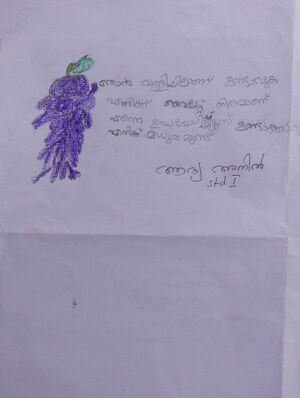 ഞാൻ വള്ളിയിലാണ് ഉണ്ടാവുക
എനിക്ക് വയലറ്റ് നിറമാണ്
എന്നെ ഉപയോഗിച്ച് ഉണ്ടാക്കാം
എനിക്ക് മധുരമുണ്ട്
ആദ്യ അനിൽ
std I